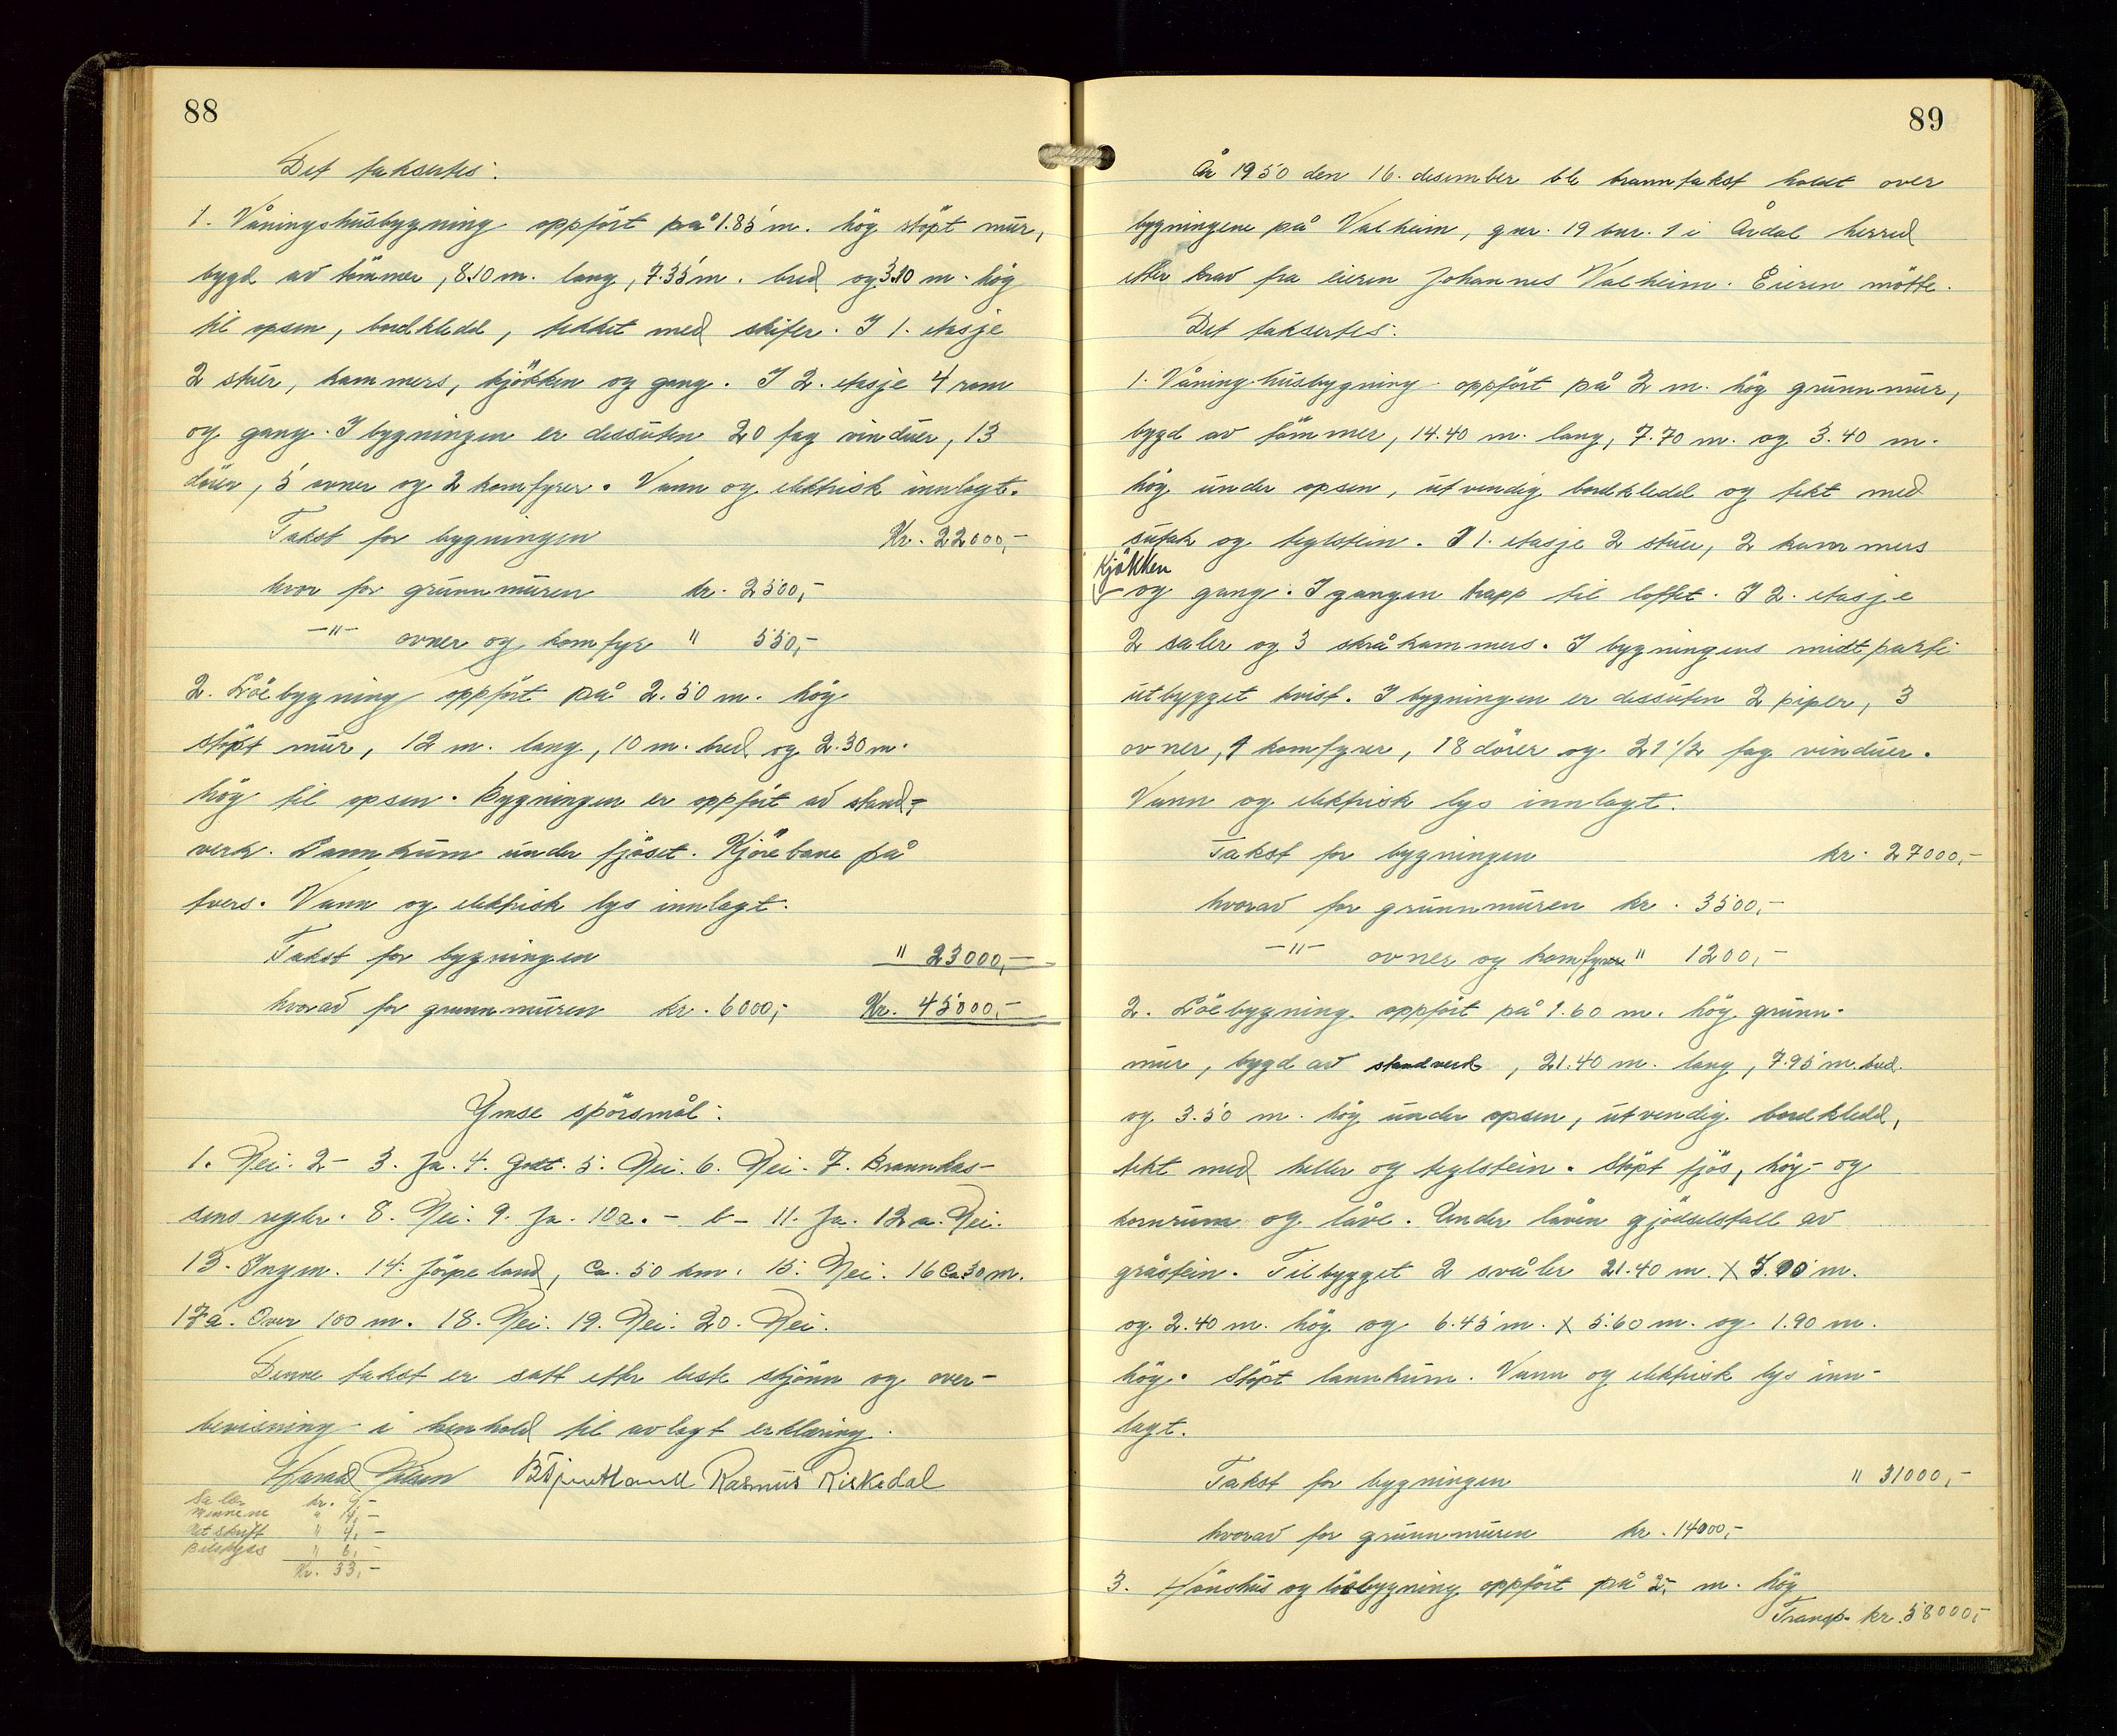 88
Det taksertes:
1. Våningshusbygning oppført på 1.85 m. høg støpt mur,
bygd av tømmer, 8.10 m. lang, 7.35 m. bred og 3.10 m. høg
til opsen, bordkledd, tekket med skifer. I 1. etasje
2 stuer, kammers, kjøkken og gang. I 2. etasje 4 rom
og gang. I bygningen er dessuten 20 fag vinduer, 13
dører, 5 ovner og 2 komfyrer. Vann og elektrisk innlagt.
Takst for bygningen Kr. 22000,-
hvor for grunnmuren kr. 2500,-
-"- ovner og komfyr " 550,-
2. Löebygning oppført på 2.50 m. høg
støpt mur, 12 m. lang, 10 m. bred og 2.30 m.
høg til opsen. Bygningen er oppført av stand-
verk. Lannkum under fjøset. Kjørebane på
tvers. Vann og elektrisk lys innlagt.
Takst for bygningen " 23000,-
hvorav for grunnmuren kr. 6000,- Kr. 45000,-
Ymse spørsmål:
1. Nei. 2 - 3. Ja. 4. Godt. 5. Nei. 6. Nei. 7. Brannkas-
sens regler. 8. Nei. 9. Ja. 10a. - b - 11. Ja. 12a. Nei.
13. Ingen. 14. Jørpeland, ca. 50 km. 15. Nei. 16 Ca 30 m.
17a. Over 100 m. 18. Nei. 19. Nei. 20. Nei.
Denne takst er satt etter beste skjønn og over-
bevisning i henhold til avlagt erklæring.
Rasmus Riskedal
Salær kr. 9,-
Mennene " 14,-
Utskrift " 4,-
Bilskyss " 6,-
Kr. 33,-
89
År 1950 den 16. desember ble branntakst holdt over
bygningene på Valheim, gnr. 19 bnr. 1 i Årdal herred
etter krav fra eieren Johannes Valheim. Eieren møtte.
Det taksertes:
1. Våningshusbygning oppført på 2 m. høg grunnmur,
bygd av tømmer, 14.40 m. lang, 7.70 m. og 3.40 m.
høg under opsen, utvendig bordkledd og tekt med
sutak og teglstein. I 1. etasje 2 stuer, 2 kammers
kjøkken
og gang. I gangen trapp til loftet. I 2. etasje
2 saler og 3 skråkammers. I bygningens midtparti
utbygget kvist. I bygningen er dessuten 2 piper, 3
ovner, 1 komfyrer, 18 dører og 21 1/2 fag vinduer.
Vann og elektrisk lys innlagt.
Takst for bygningen kr. 27000,-
hvorav for grunnmuren kr. 3500,-
-"- ovner og komfyrer " 1200,-
2. Löebygning oppført på 1.60 m. høg grunn-
mur, bygd av standverk, 21.40 m. lang, 7.95 m. bred.
og 3.50 m. høg under opsen, utvendig bordkledd,
tekt med heller og teglstein. Støpt fjøs, høy- og
kornrum og låve. Under låven gjødselstall av
gråstein. Tilbygget 2 svåler 21.40 m. x 3.00 m.
og 2.40 m. høg og 6.45 m. x 5.60 m. og 1.90 m.
høg. Støpt lannkum. Vann og elektrisk lys inn-
lagt.
Takst for bygningen " 31000,-
hvorav for grunnmuren kr. 14000,-
3. Hønshus og löebygning oppført på 2,- m. høg
Transp. kr. 58000,-